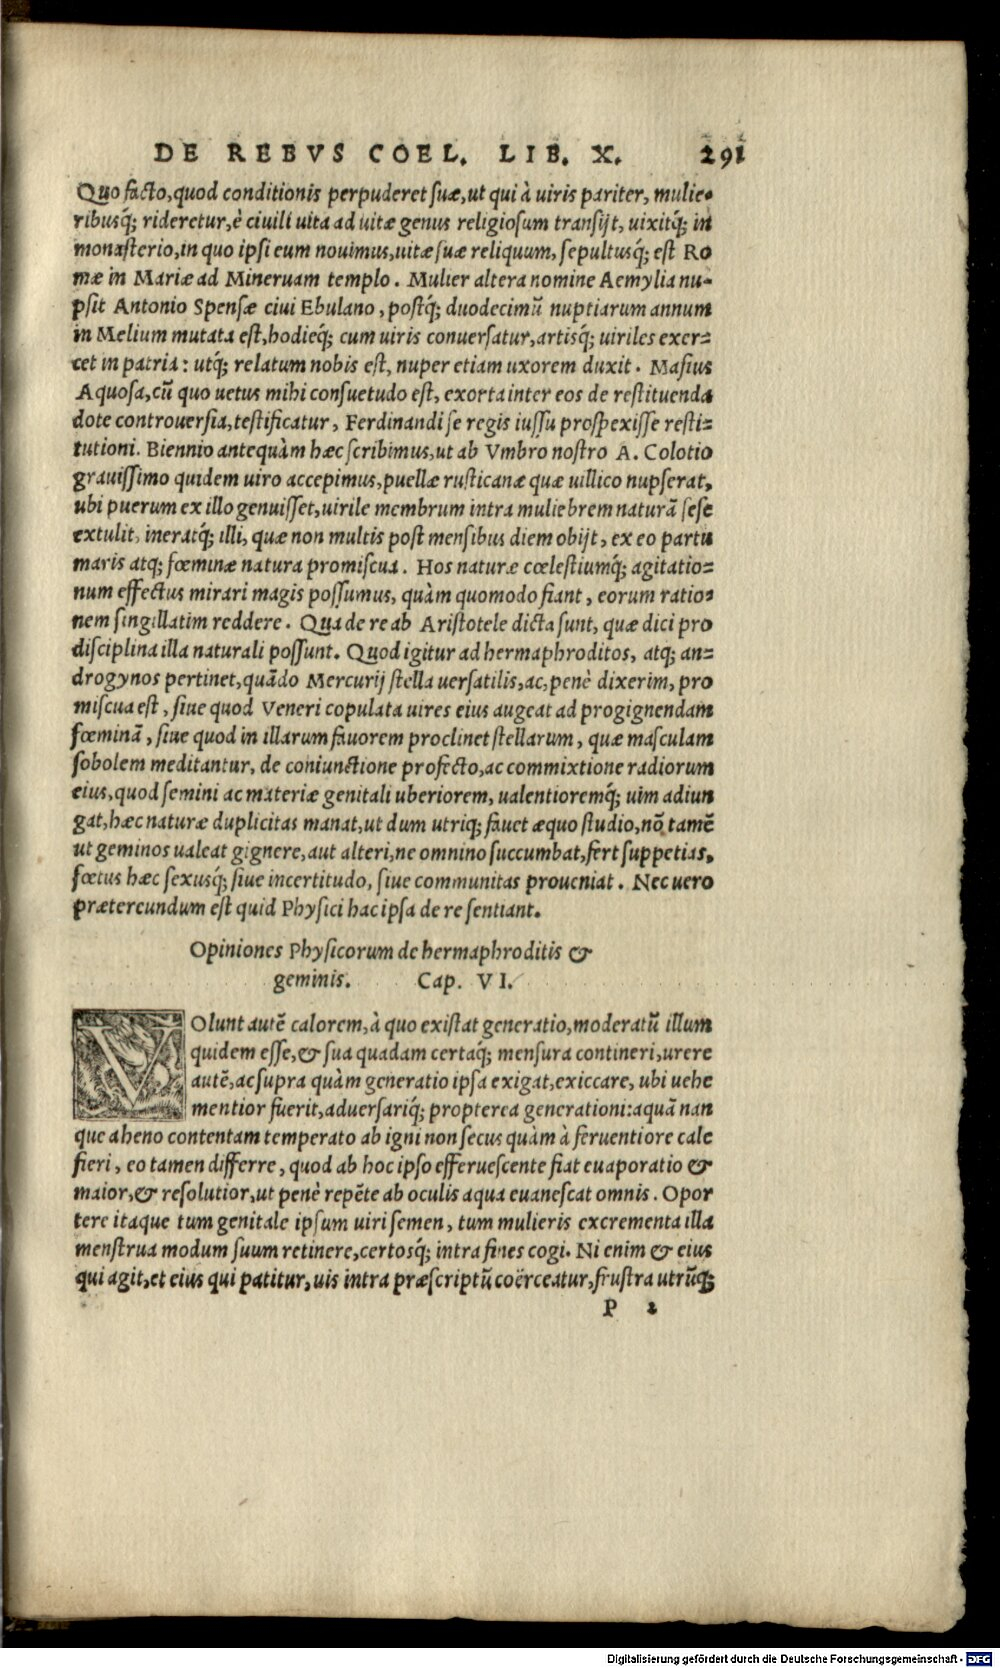 DE REBVS COEL. LIB. X. 291
Quo facto, quod conditionis perpuderet suæ, ut qui à uiris pariter, mulie-
ribusq́; rideretur, è ciuili uita ad uitæ genus religiosum transijt, uixitq́; in
monasterio, in quo ipsi eum nouimus, uitæ suæ reliquum, sepultusq́; est Ro
mæ in Mariæ ad Mineruam templo. Mulier altera nomine Aemylia nu-
psit Antonio Spensæ ciui Ebulano, postq́; duodecimũ nuptiarum annum
in Melium mutata est, hodieq́; cum uiris conuersatur, artisq́; uiriles exer-
cet in patria: utq́; relatum nobis est, nuper etiam uxorem duxit. Masius
Aquosa, cũ quo uetus mihi consuetudo est, exorta inter eos de restituenda
dote controuersia, testificatur, Ferdinandi se regis iussu prospexisse resti-
tutioni. Biennio antequàm hæc scribimus, ut ab Vmbro nostro A. Colotio
grauissimo quidem uiro accepimus, puellæ rusticanæ quæ uillico nupserat,
ubi puerum ex illo genuisset, uirile membrum intra muliebrem naturã sese
extulit, ineratq́; illi, quæ non multis post mensibus diem obijt, ex eo partu
maris atq; fœminæ natura promiscua. Hos naturæ cœlestiumq́; agitatio-
num effectus mirari magis possumus, quàm quomodo fiant, eorum ratio-
nem singillatim reddere. Qua de re ab Aristotele dicta sunt, quæ dici pro
disciplina illa naturali possunt. Quod igitur ad hermaphroditos, atq; an-
drogynos pertinet, quãdo Mercurij stella uersatilis, ac, penè dixerim, pro
miscua est, siue quod Veneri copulata uires eius augeat ad progignendam
fœminã, siue quod in illarum fauorem proclinet stellarum, quæ masculam
sobolem meditantur, de coniunctione profecto, ac commixtione radiorum
eius, quod semini ac materiæ genitali uberiorem, ualentioremq́; uim adiun
gat, hæc naturæ duplicitas manat, ut dum utriq; fauet æquo studio, nõ tamẽ
ut geminos ualeat gignere, aut alteri, ne omnino succumbat, fert suppetias,
fœtus hæc sexusq́; siue incertitudo, siue communitas proueniat. Nec uero
prætereundum est quid Physici hac ipsa de re sentiant.
Opiniones Physicorum de hermaphroditis &
geminis. Cap. VI.
VOlunt autẽ calorem, à quo existat generatio, moderatũ illum
quidem esse, & sua quadam certaq́; mensura contineri, urere
autẽ, ac supra quàm generatio ipsa exigat, exiccare, ubi uehe
mentior fuerit, aduersariq́; propterea generationi: aquã nan
que aheno contentam temperato ab igni non secus quàm à feruentiore cale
fieri, eo tamen differre, quod ab hoc ipso efferuescente fiat euaporatio &
maior, & resolutior, ut penè repẽte ab oculis aqua euanescat omnis. Opor
tere itaque tum genitale ipsum uiri semen, tum mulieris excrementa illa
menstrua modum suum retinere, certosq́; intra fines cogi. Ni enim & eius
qui agit, et eius qui patitur, uis intra præscriptũ coërceatur, frustra utrũq;
P 2
Digitalisierung gefördert durch die Deutsche Forschungsgemeinschaft - DFG